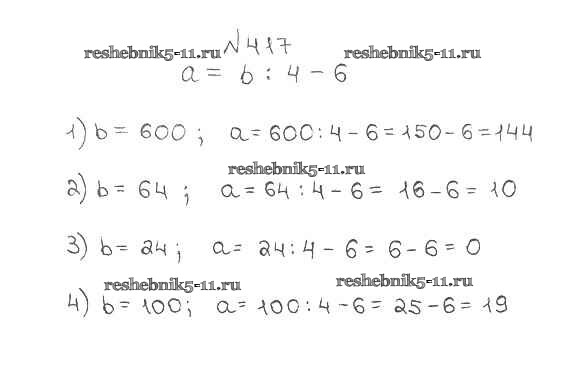 №417
reshebnik5-11.ru reshebnik5-11.ru
a = b : 4 - 6
1) b = 600 ; a = 600 : 4 - 6 = 150 - 6 = 144
reshebnik5-11.ru
2) b = 64 ; a = 64 : 4 - 6 = 16 - 6 = 10
3) b = 24 ; a = 24 : 4 - 6 = 6 - 6 = 0
reshebnik5-11.ru reshebnik5-11.ru
4) b = 100 ; a = 100 : 4 - 6 = 25 - 6 = 19